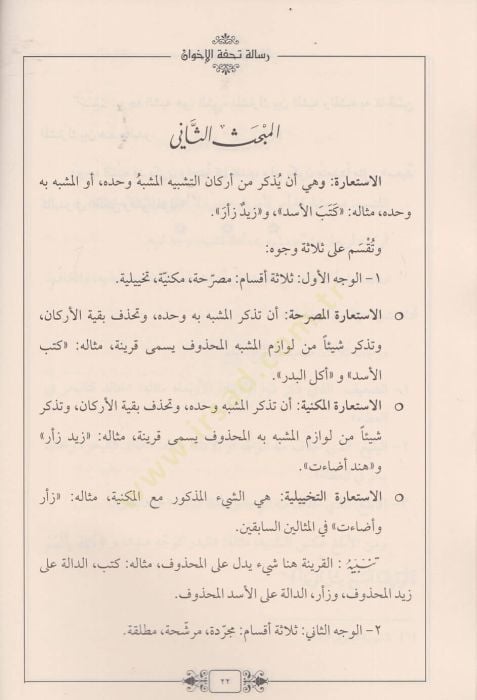 رسالة تحفة الإخوان
المبحث الثَّاني
الاستعارة: وهي أن يُذكر من أركان التشبيه المشبهُ وحده، أو المشبه به
وحده، مثاله: «كَتَبَ الأسد»، و«زيدٌ زأرَ».
وتُقْسَم على ثلاثة وجوه:
١- الوجه الأول: ثلاثة أقسام: مصرّحة، مكنيّة، تخييلية.
○ الاستعارة المصرحة: أن تذكر المشبه به وحده، وتحذف بقية الأركان،
وتذكر شيئاً من لوازم المشبه المحذوف يسمى قرينة، مثاله: «كتب
الأسد» و «أكل البدر».
○ الاستعارة المكنية: أن تذكر المشبه وحده، وتحذف بقية الأركان، وتذكر
شيئاً من لوازم المشبه به المحذوف يسمى قرينة، مثاله: «زيد زأر»
و«هند أضاءت».
○ الاستعارة التخييلية: هي الشيء المذكور مع المكنية، مثاله: «زأر
وأضاءت» في المثالين السابقين.
تنبيه: القرينة هنا شيء يدل على المحذوف، مثاله: كتب، الدالة على
زيد المحذوف، وزأر، الدالة على الأسد المحذوف.
٢- الوجه الثاني: ثلاثة أقسام: مجرّدة، مرشّحة، مطلقة.
٢٢
www.irsad.com.tr